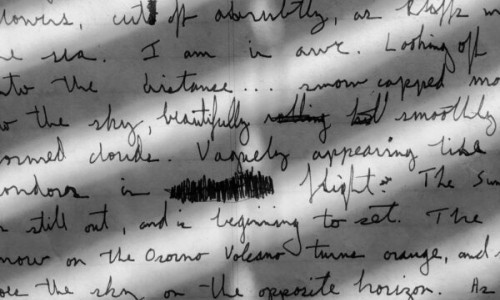 flowers, cut off abruptly, as bluffs m
he sea. I am in awe. Looking off
nto the distance... snow capped mo
to the sky, beautifully rolling smoothly
ormed clouds. Vaguely appearing like
ondors in flight. The Sun
s still out, and is beginning to set. The
now on the Osorno Volcano turns orange, and s
oes the sky on the opposite horizon. As